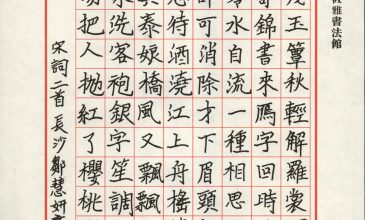 雅書法館
玉簟秋輕解羅裳
寄錦書來雁字回時
零水自流一種相思
計可消除才下眉頭
待酒澆江上舟搖
泰娘橋風又飄飄
洗客袍銀字笙調
把人拋紅了櫻桃
宋詞二首長沙鄒慧妍